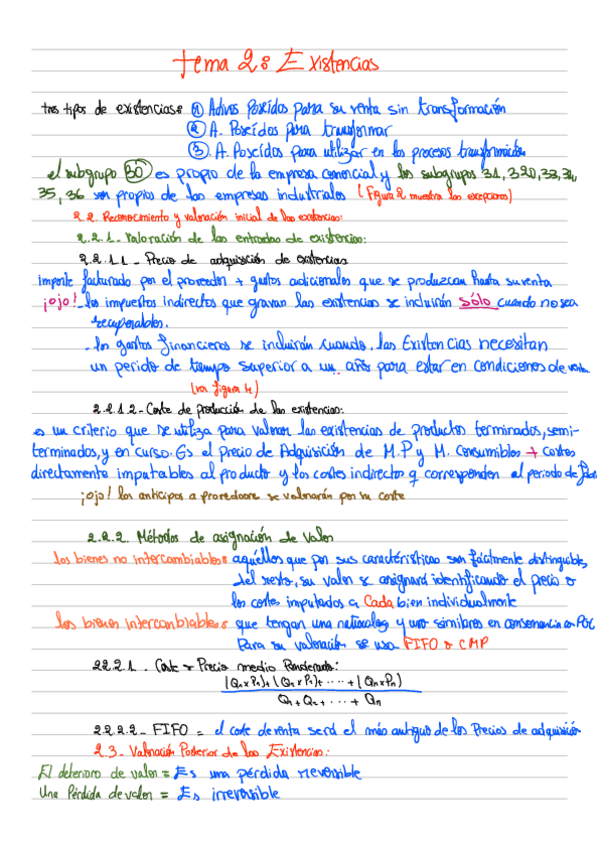 Tema 2: Existencias
tres tipos de existencias: ① Activos Poseídos para su venta sin transformación
② A. Poseídos para transformar
③ A. Poseídos para utilizar en los procesos transformación
el subgrupo 30 es propio de la empresa comercial y los subgrupos 31, 320, 33, 34,
35, 36 son propios de las empresas industriales (Figura 2 muestra las excepciones)
2.2. Reconocimiento y valoración inicial de las existencias:
2.2.1 - Valoración de las entradas de existencias:
2.2.1.1 - Precio de adquisición de existencias
importe facturado por el proveedor + gastos adicionales que se produzcan hasta su venta
¡ojo! - los impuestos indirectos que gravan las existencias se incluirán sólo cuando no sea
recuperables.
- los gastos financieros se incluirán cuando las Existencias necesitan
un perido de tiempo superior a un año para estar en condiciones de venta
(ver figura 4)
2.2.1.2 - Coste de producción de las existencias:
es un criterio que se utiliza para valorar las existencias de productos terminados, semi-
terminados, y en curso. Es el precio de Adquisición de M.P y M. Consumibles + costes
directamente imputables al producto y los costes indirectos q corresponden al periodo de
¡ojo! los anticipos a proveedores se valorarán por su coste
2.2.2. Métodos de asignación de valor
los bienes no intercambiables: aquéllos que por sus características son fácilmente distinguibles
del resto, su valor se asignará identificando el precio o
los costes imputados a Cada bien individualmente
los bienes intercambiables: que tengan una naturaleza y uso similares en consonancia con PGC
Para su valoración se usa FIFO o CMP
2.2.2.1. Coste = Precio medio Ponderado:
(Q₁ x P₁) + (Q₂ x P₂) + ..... + (Qn x Pn)
Q₁ + Q₂ + ... + Qn
2.2.2.2 - FIFO = el coste de venta será el más antiguo de los Precios de adquisición
2.3 - Valoración Posterior de las Existencias:
El deterioro de valor = Es una pérdida reversible
Una Pérdida de valor = Es irreversible